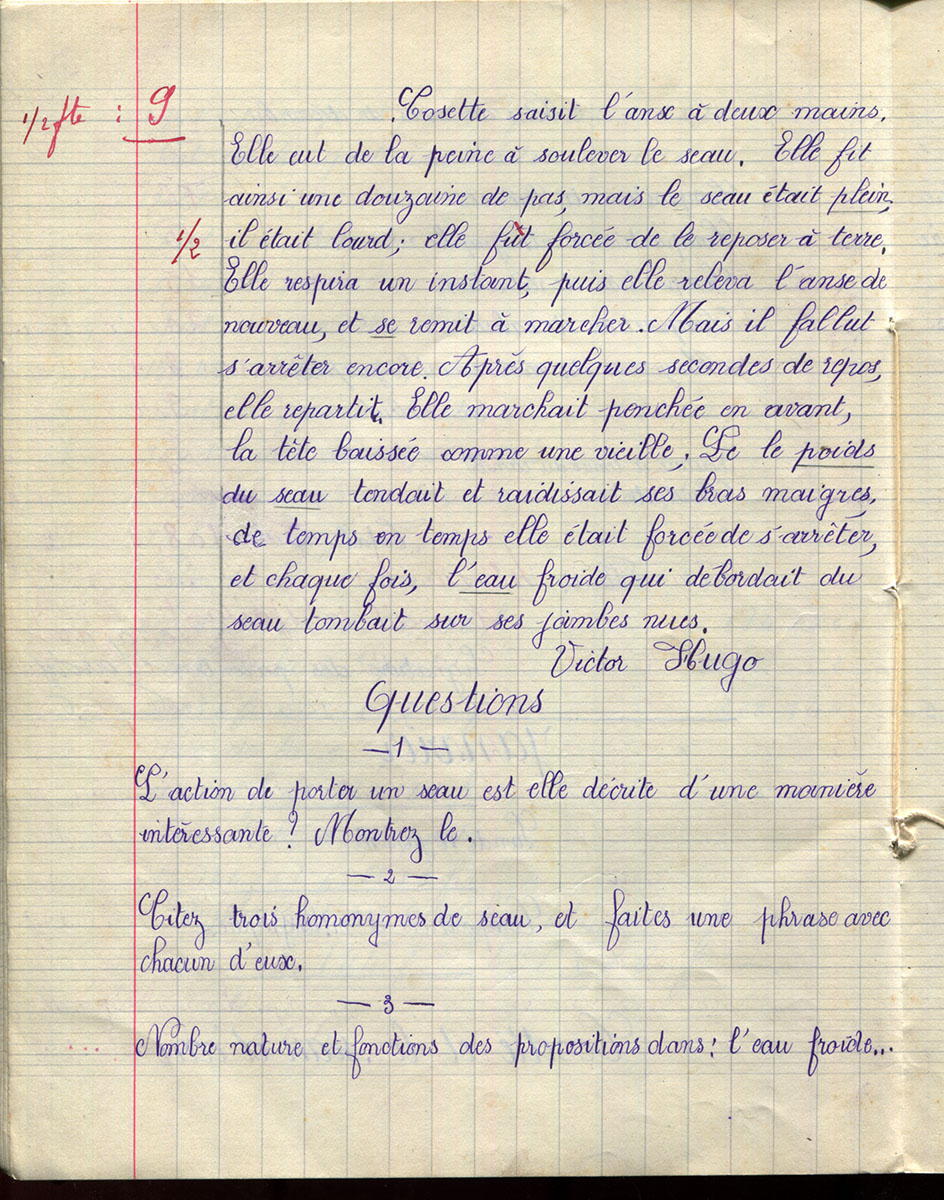 1/2 fte : 9
Cosette saisit l'anse à deux mains.
Elle eut de la peine à soulever le seau. Elle fit
ainsi une douzaine de pas, mais le seau était plein,
1/2 il était lourd ; elle fût forcée de le reposer à terre.
Elle respira un instant, puis elle releva l'anse de
nouveau, et se remit à marcher. Mais il fallut
s'arrêter encore. Après quelques secondes de repos,
elle repartit. Elle marchait penchée en avant,
la tête baissée comme une vieille. Le le poids
du seau tendait et raidissait ses bras maigres.
de temps en temps elle était forcée de s'arrêter,
et chaque fois, l'eau froide qui debordait du
seau tombait sur ses jambes nues.
Victor Hugo
Questions
— 1 —
L'action de porter un seau est elle décrite d'une manière
intéressante ? Montrez le.
— 2 —
Citez trois homonymes de seau, et faites une phrase avec
chacun d'eux.
— 3 —
Nombre nature et fonctions des propositions dans : l'eau froide...